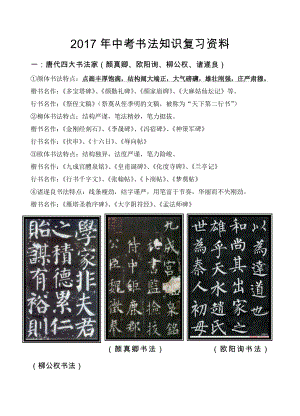 2017年中考书法知识复习资料
一：唐代四大书法家（颜真卿、欧阳询、柳公权、诸遂良）
①颜体书法特点：点画丰厚饱满，结构阔大端正，大气磅礴，雄壮刚强，庄严肃穆。
楷书名作：《多宝塔碑》、《颜勤礼碑》、《颜家庙碑》、《大麻姑仙坛记》等。
行书名作：《祭侄文稿》（祭奠从侄季明的文稿，被称为“天下第二行书”）
②柳体书法特点：结构严谨，笔法精妙，笔力挺拔。
楷书名作：《金刚经刻石》、《李晟碑》、《玄秘塔碑》、《冯宿碑》、《神策军碑》
行书名作：《伏审》、《十六日》、《辱向帖》
③欧体书法特点：结构独异，法度严谨，笔力险峻。
楷书名作：《九成宫醴泉铭》、《皇甫诞碑》、《化度寺碑》、《兰亭记》
行书名作：《行书千字文》、《张翰帖》、《卜商帖》、《梦奠帖》
④诸遂良书法特点：线条瘦劲，结字谨严，用笔富于节奏，华丽而灵动。
楷书名作：《雁塔圣教序碑》、《大字阴符经》、《孟法师碑》
學家非夫若
之積德累仁
貽謀有裕則
（颜真卿书法）
（欧阳询书法）
（柳公权书法）